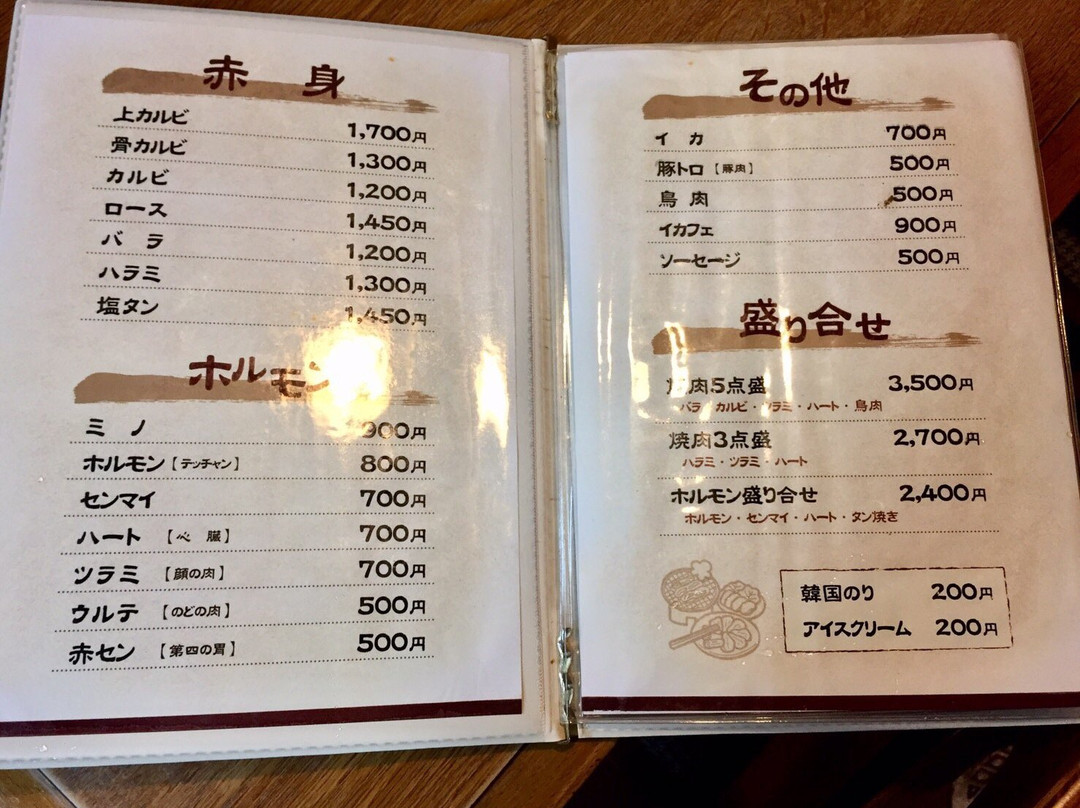 赤 身
上カルビ 1,700円
骨カルビ 1,300円
カルビ 1,200円
ロース 1,450円
バ ラ 1,200円
ハラミ 1,300円
塩タン 1,450円
ホルモン
ミ ノ 900円
ホルモン【テッチャン】 800円
センマイ 700円
ハート 【心 臓】 700円
ツラミ 【顔の肉】 700円
ウルテ 【のどの肉】 500円
赤セン 【第四の胃】 500円
その他
イ カ 700円
豚トロ【豚肉】 500円
鳥 肉 500円
イカフェ 900円
ソーセージ 500円
盛り合せ
焼肉5点盛 3,500円
バラ・カルビ・ツラミ・ハート・鳥肉
焼肉3点盛 2,700円
ハラミ・ツラミ・ハート
ホルモン盛り合せ 2,400円
ホルモン・センマイ・ハート・タン焼き
韓国のり 200円
アイスクリーム 200円